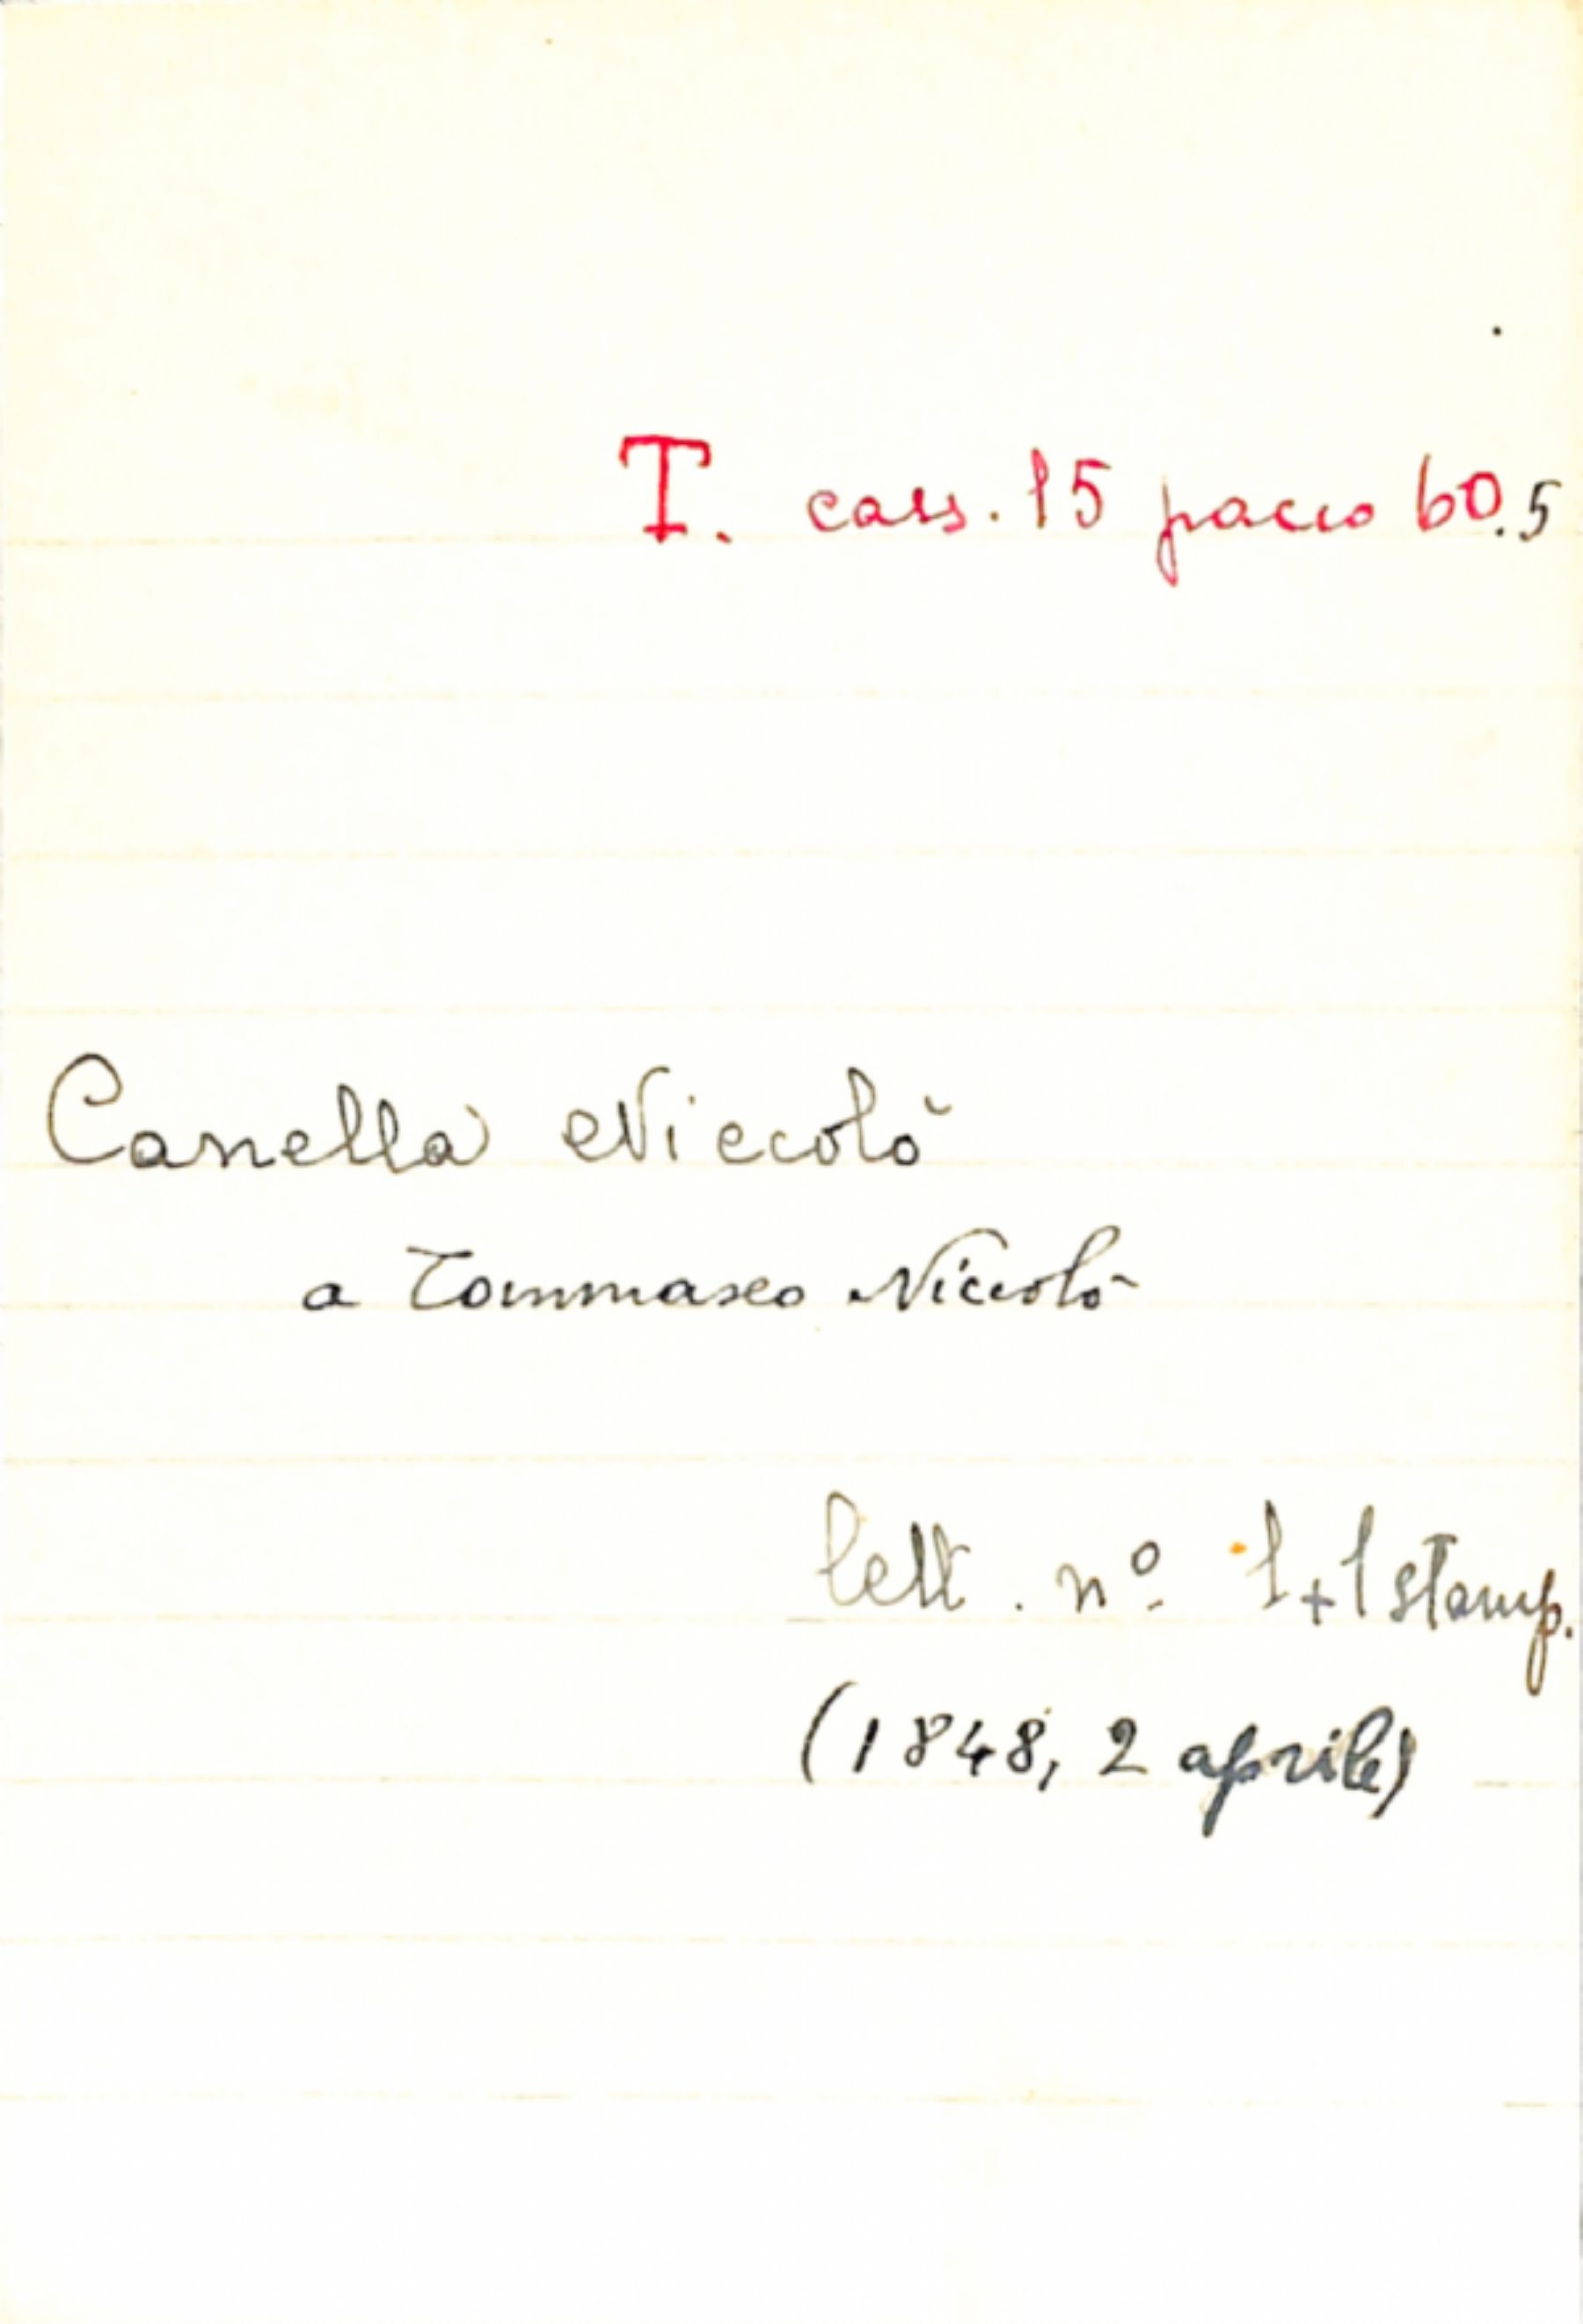 T. cass. 15 pacco 60.5
Canella Niccolò
a Tommaseo Niccolò
lett. nº. 1+1 stamp.
(1848, 2 aprile)